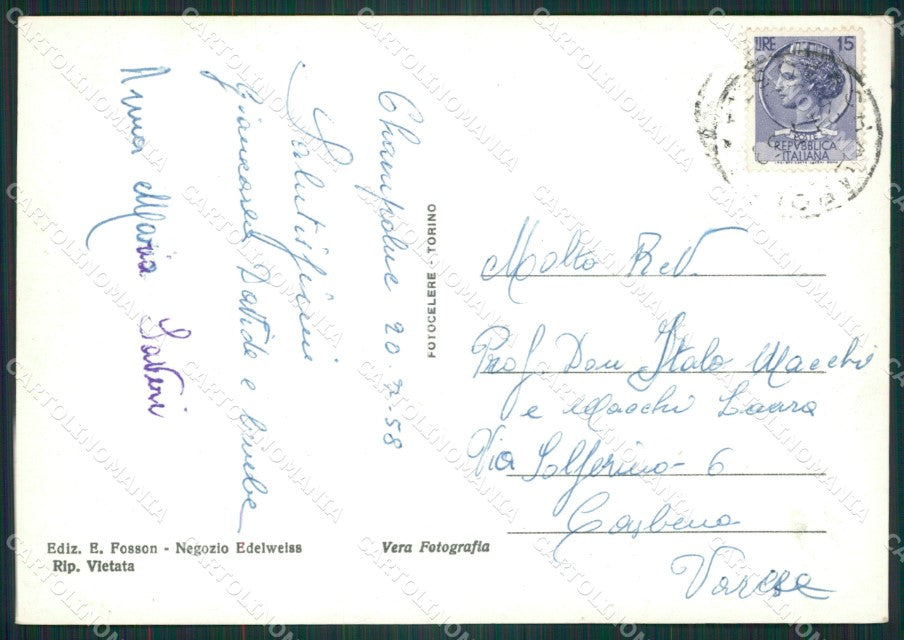 Champoluc 20.7.58
Salutissimi
Giancarla Davide e
Anna Maria Saveri
FOTOCELERE - TORINO
Ediz. E. Fosson - Negozio Edelweiss
Rip. Vietata
Vera Fotografia
LIRE 15
POSTE
REPVBBLICA
ITALIANA
Molto Rev.
Prof. Don Italo Macchi
e Macchi Laura
Via Solferino - 6
Varese
CARTOLINOMANIA